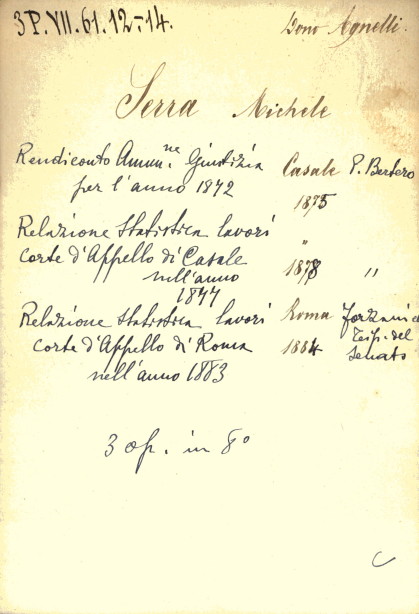 3 P. VII. 61. 12-14.
Dono Agnelli.
Serra Michele
Rendiconto Amm.ne Giustizia Casale P. Bertero
per l'anno 1872 1875
Relazione statistica lavori
corte d'Appello di Casale "
nell'anno 1878 "
1877
Relazione statistica lavori Roma Forzani e
corte d'Appello di Roma 1884 Tip. del
nell'anno 1883 Senato
3 op. in 8°
C